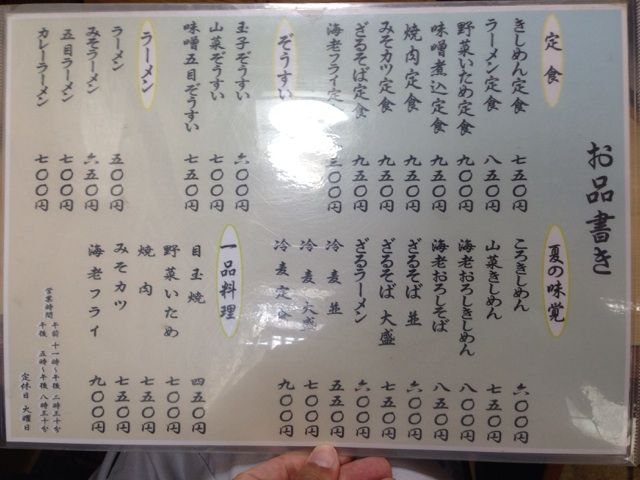 お品書き
定食
きしめん定食 七五〇円
ラーメン定食 八五〇円
野菜いため定食 九〇〇円
味噌煮込定食 九五〇円
焼肉定食 九五〇円
みそカツ定食 九五〇円
ざるそば定食 九五〇円
海老フライ定 〇〇円
ぞうすい
玉子ぞうすい 六〇〇円
山菜ぞうすい 七〇〇円
味噌五目ぞうすい 七五〇円
ラーメン
ラーメン 五〇〇円
みそラーメン 六五〇円
五目ラーメン 七〇〇円
カレーラーメン 七〇〇円
夏の味覚
ころきしめん 六〇〇円
山菜きしめん 七五〇円
海老おろしきしめん 八〇〇円
海老おろしそば 八五〇円
ざるそば 並 六〇〇円
ざるそば 大盛 七五〇円
ざるラーメン 六〇〇円
冷麦 並 五五〇円
冷麦 大盛 七〇〇円
冷麦定食 九〇〇円
一品料理
目玉焼 四五〇円
野菜いため 七〇〇円
焼肉 七五〇円
みそカツ 七五〇円
海老フライ 九〇〇円
営業時間 午前 十一時〜午後 二時三十分
午後 五時〜午後 八時三十分
定休日 火曜日